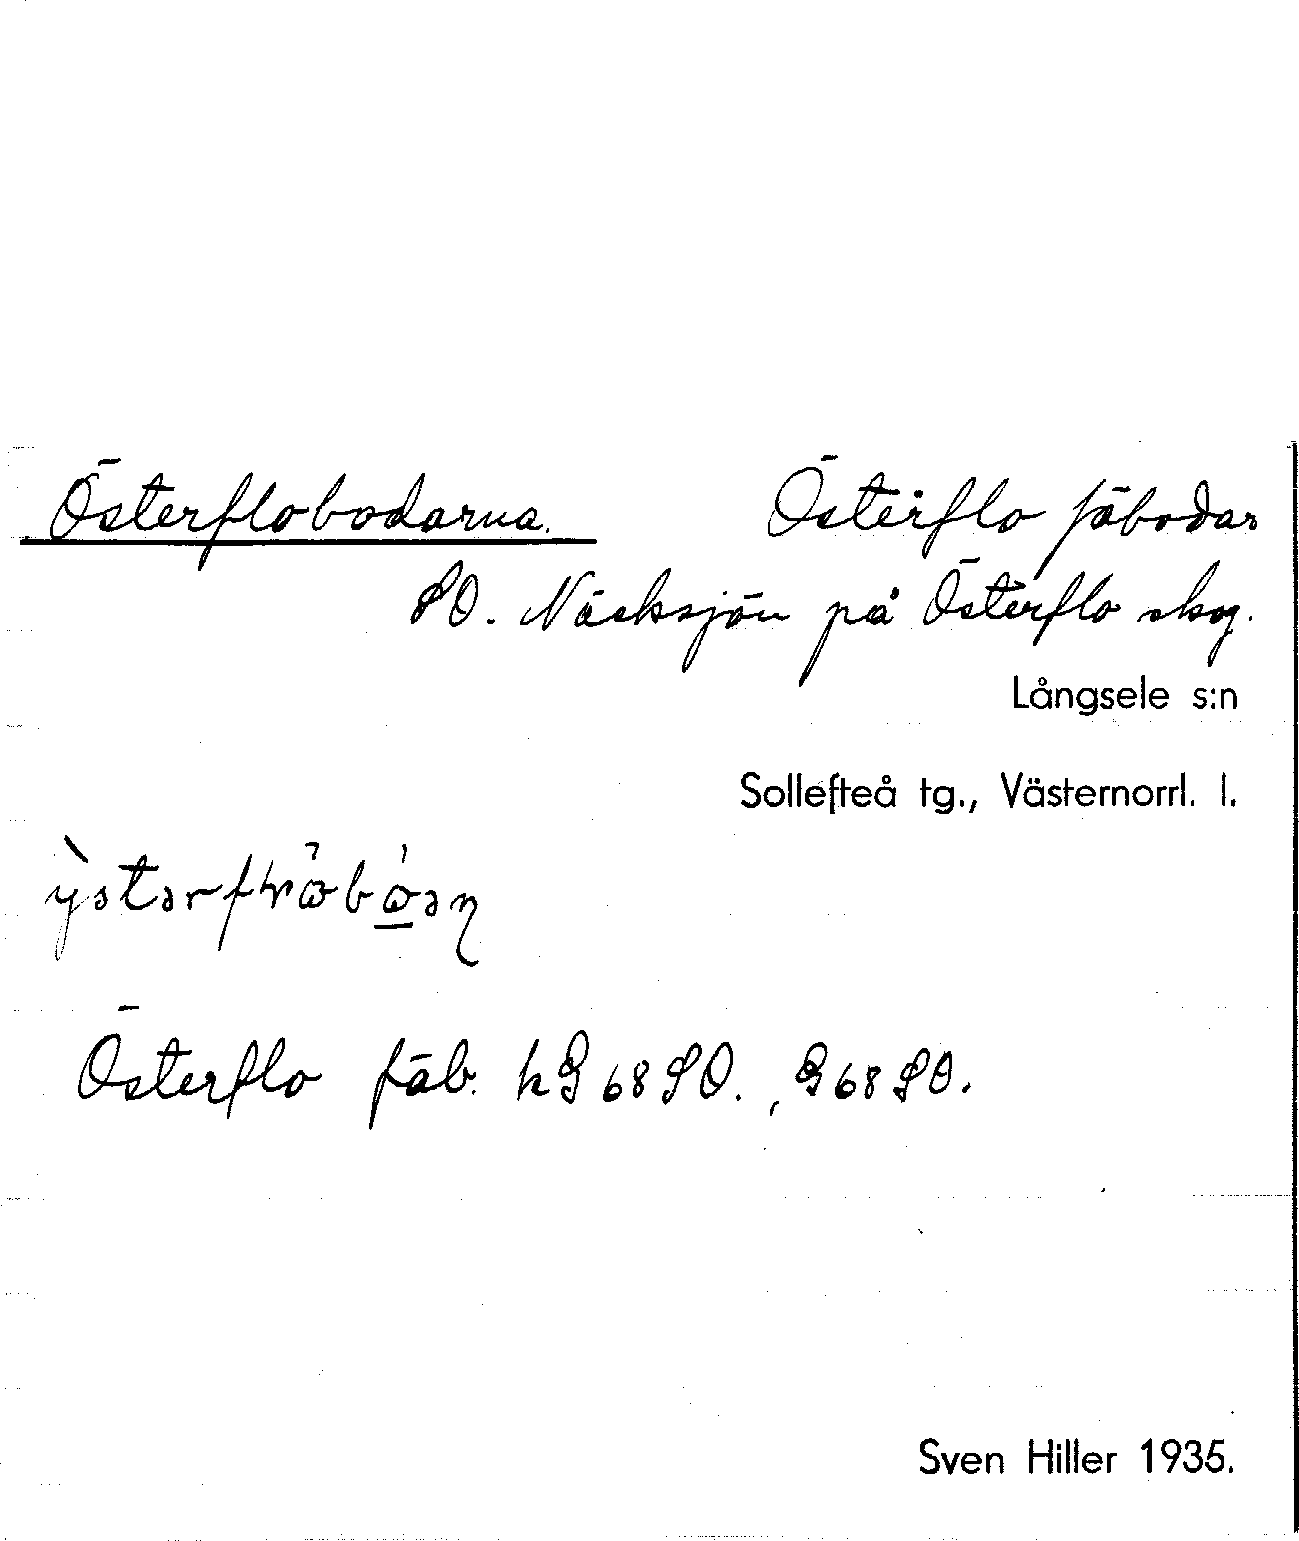 Österflobodarna. Österflo fäbodar
SO. Näcksjön på Österflo skog.
Långsele s:n
Sollefteå tg., Västernorrl. l.
Österflo fäb. hG 68 SO., G 68 SO.
Sven Hiller 1935.